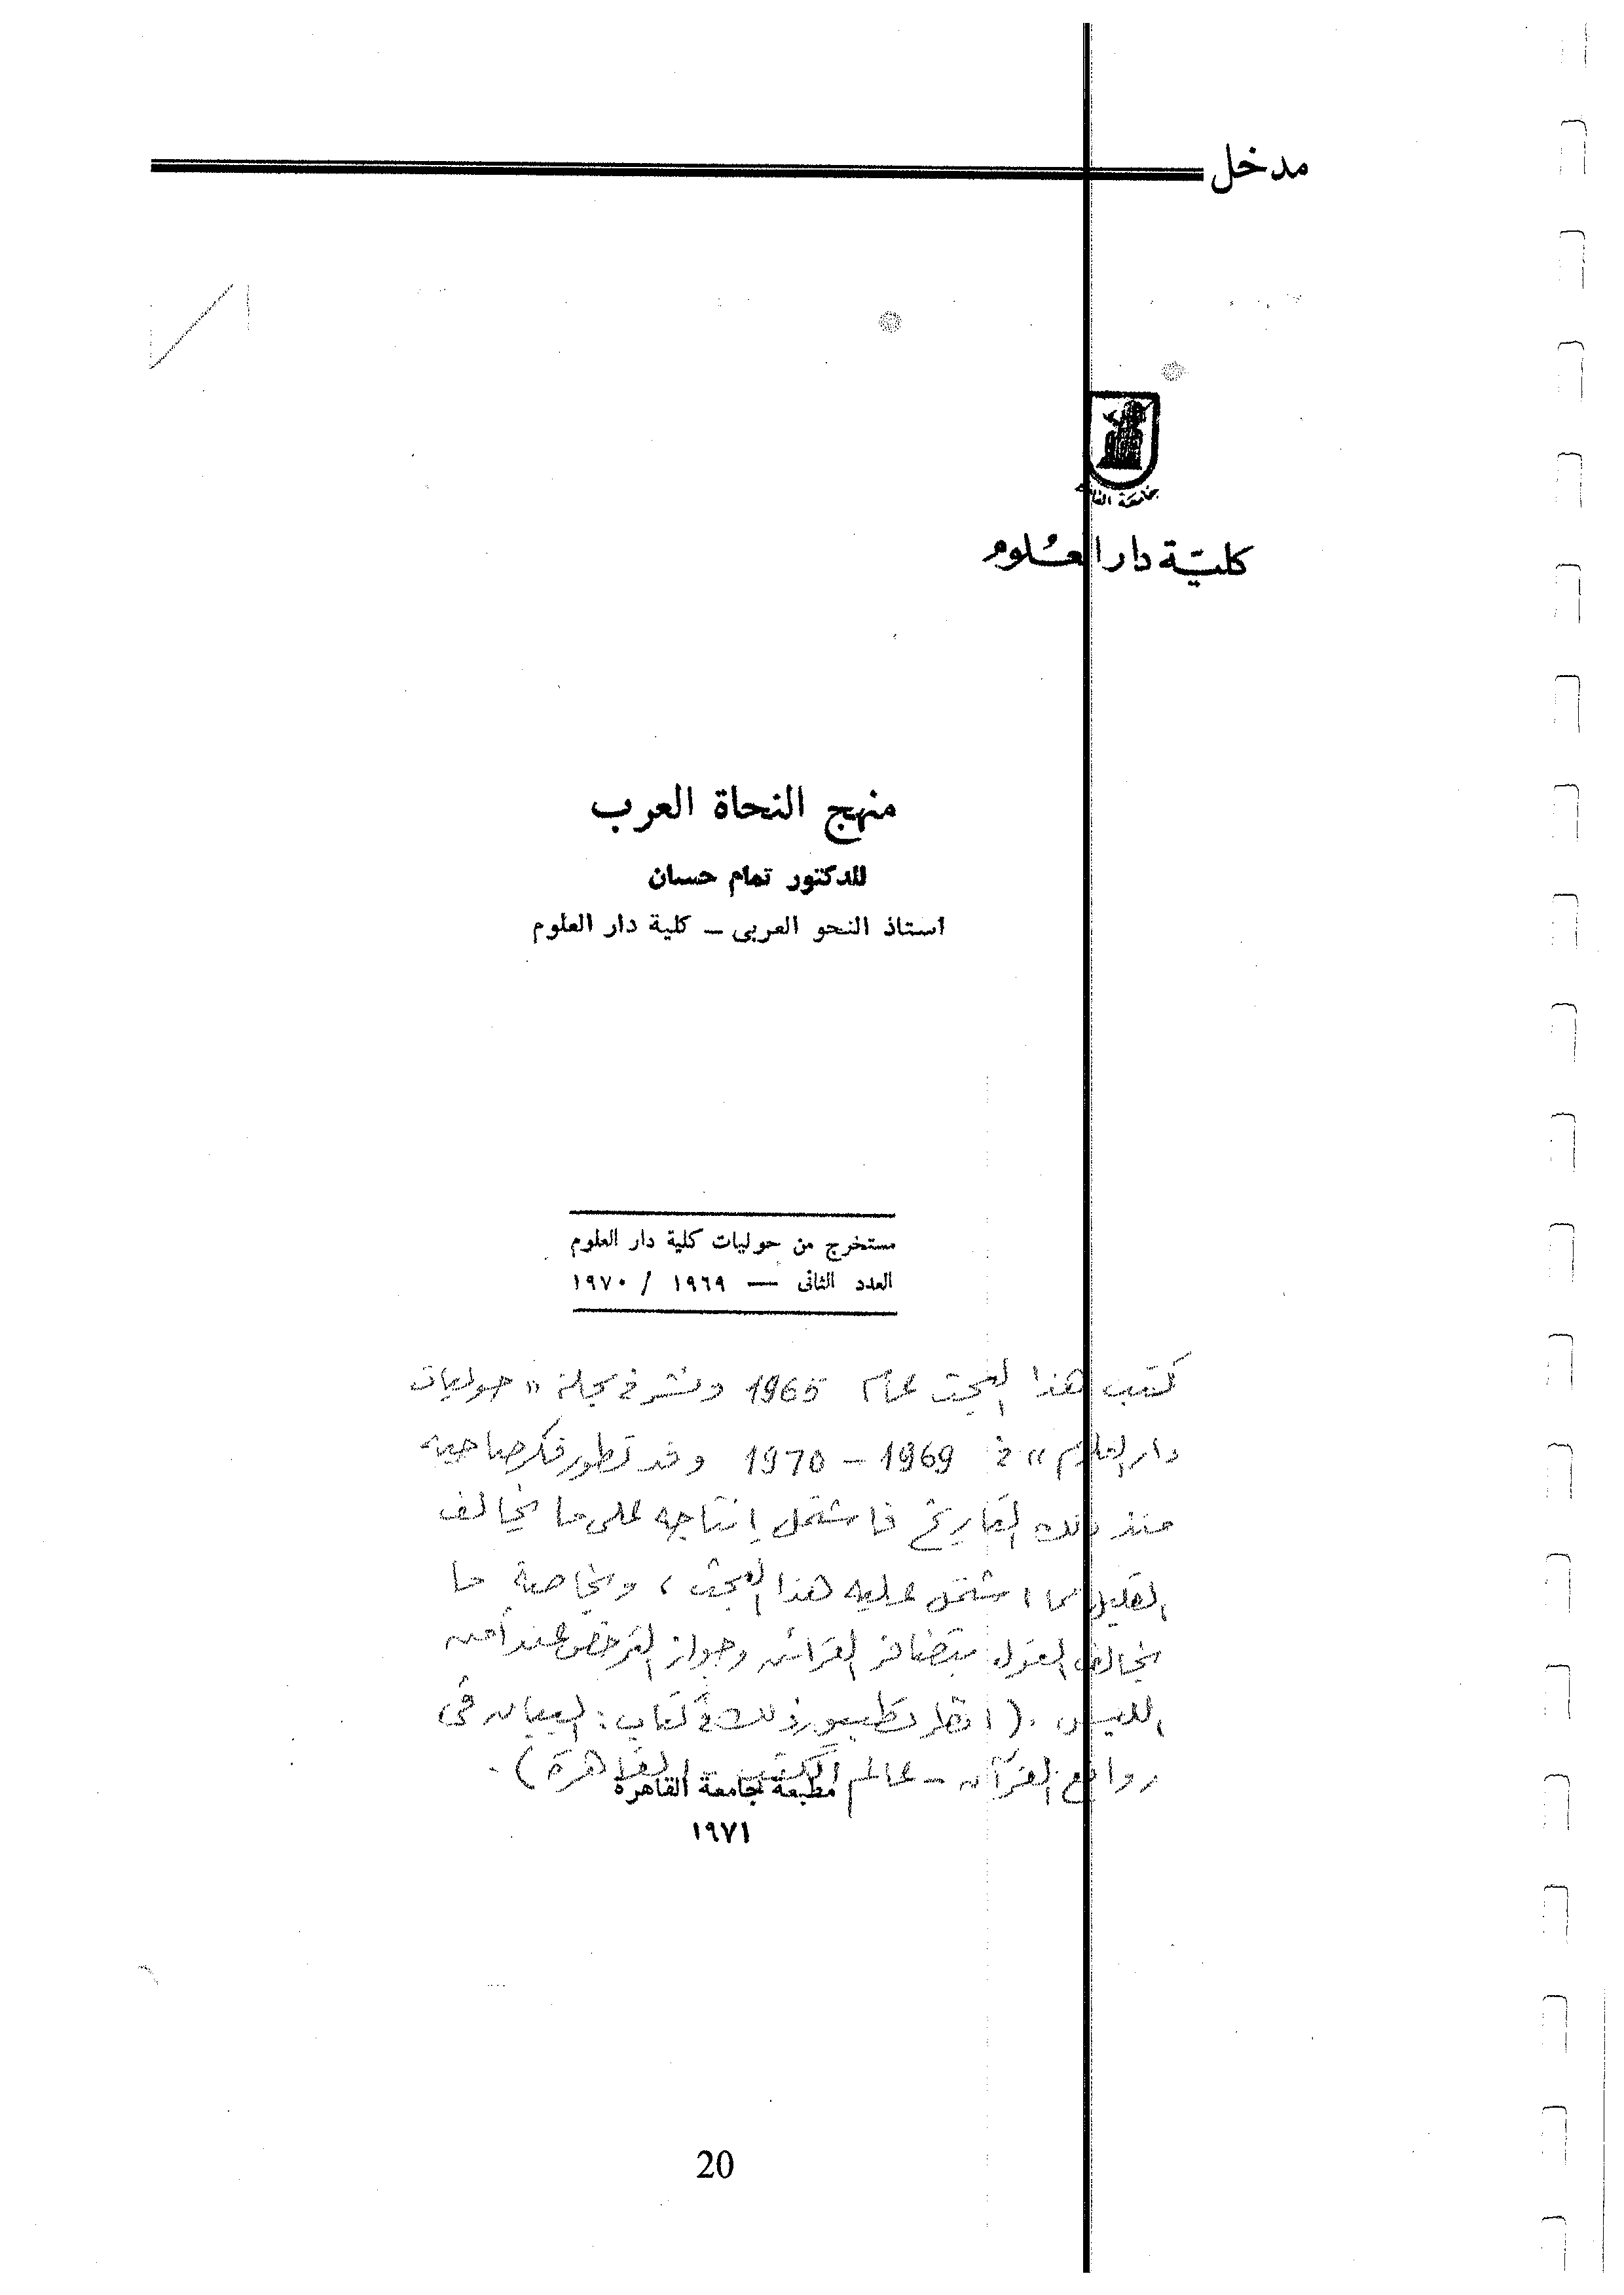 مدخل
جامعة القاهرة
كلية دار العلوم
منهج النحاة العرب
للدكتور تمام حسان
استاذ النحو العربى – كلية دار العلوم
مستخرج من حوليات كلية دار العلوم
العدد الثانى — ١٩٦٩ / ١٩٧٠
كتب هذا البحث عام 1965 ونشر فى مجلة «حوليات
دار العلوم» فى 1969 – 1970 وقد تطور فكر صاحبه
منذ ذلك التاريخ فاشتمل إنتاجه على ما يخالف
القليل مما اشتمل عليه هذا البحث، وبخاصة ما
يخالف القول بتضافر القرائن وجواز الترخص عند أمن
اللبس. (انظر تطبيق ذلك فى كتاب: البيان فى
روائع القرآن – عالم الكتب – القاهرة).
مطبعة جامعة القاهرة
١٩٧١
20